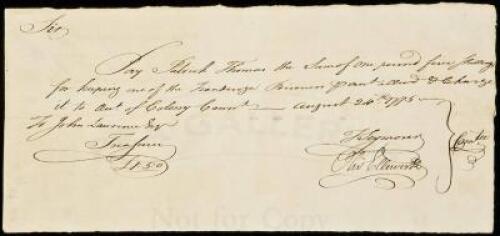 Sir
Pay Patrick Thomas the Sum of One pound five Shillgs
for keeping one of the Ticonderoga Prisoners & Charge
it to Acct of Colony Count August 24th 1775
To John Lawrence Esqr
Treasurer
£1 5 0
T Seymour
Oliv Ellsworth
Comtee
GALLER
Not for Copy